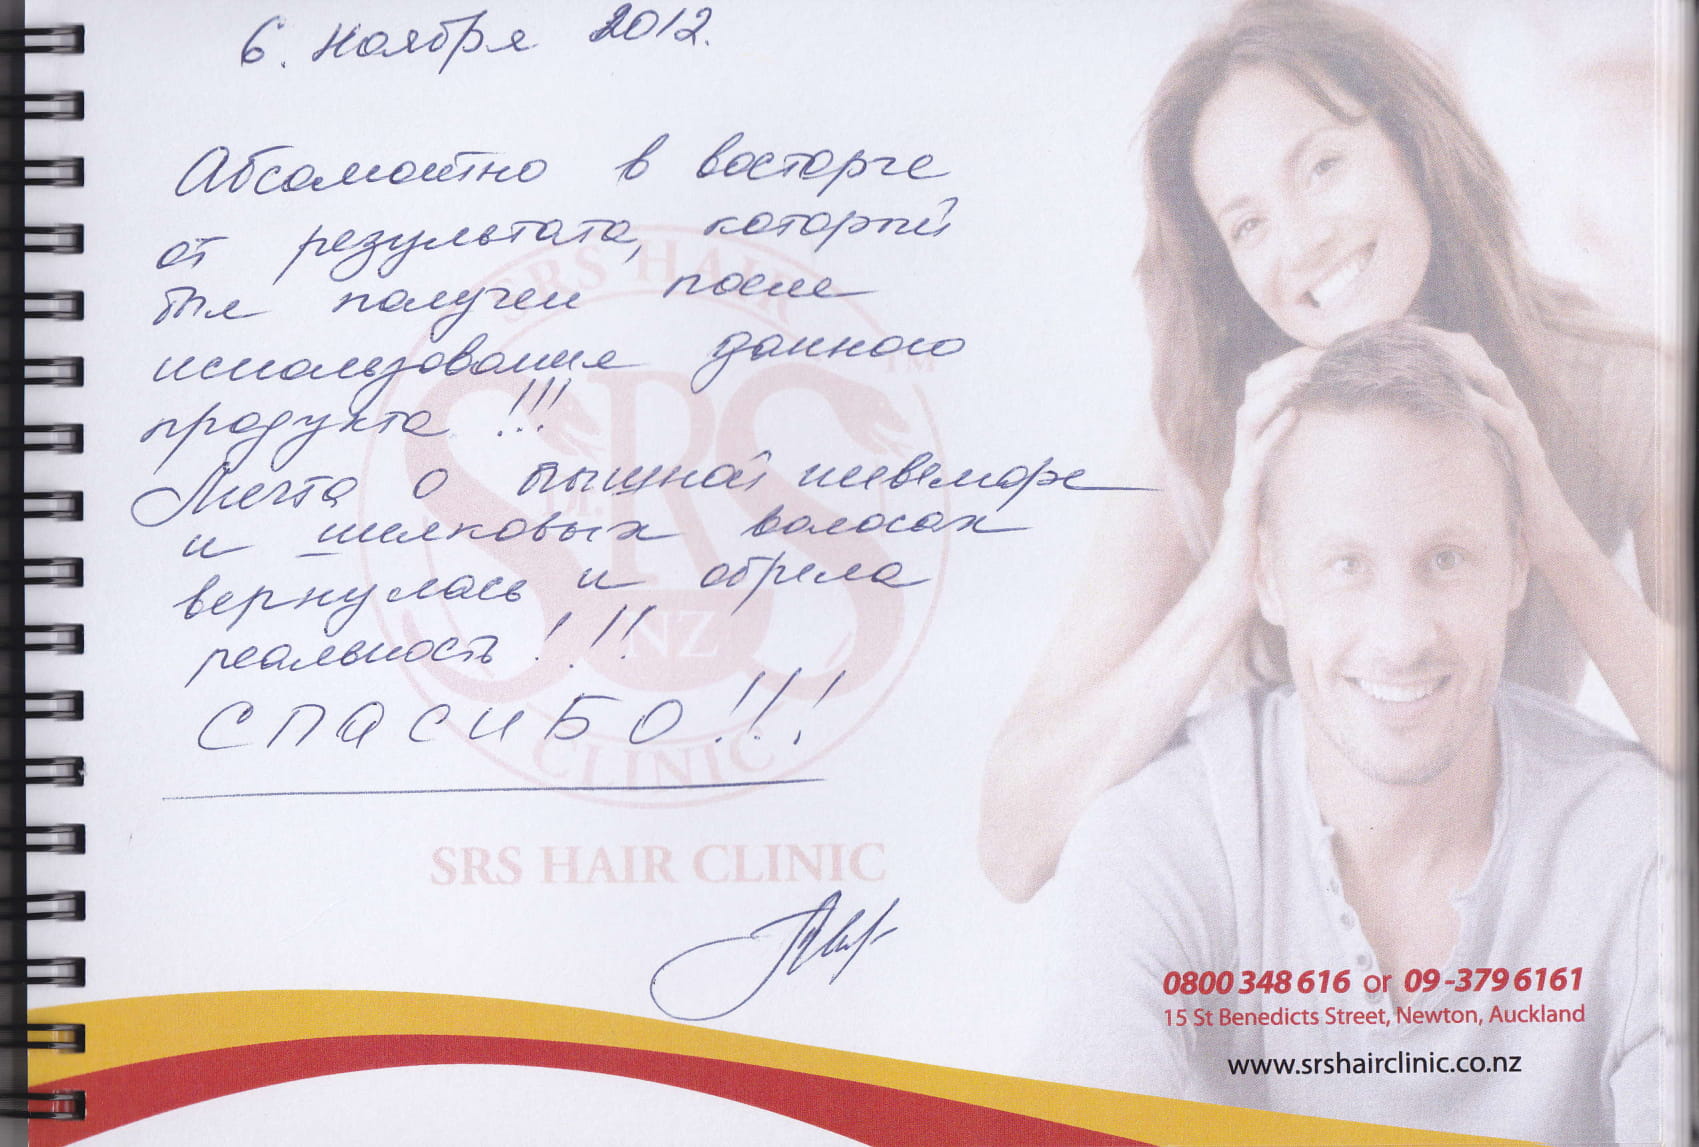 6. Ноября 2012.
Абсолютно в восторге
от результата, который
был получен после
использования данного
продукта !!!
Мечта о пышной шевелюре
и шелковых волосах
вернулась и обрела
реальность !!!
СПАСИБО!!!
SRS HAIR
TM
SRS
NZ
CLINIC
SRS HAIR CLINIC
0800 348 616 or 09-379 6161
15 St Benedicts Street, Newton, Auckland
www.srshairclinic.co.nz